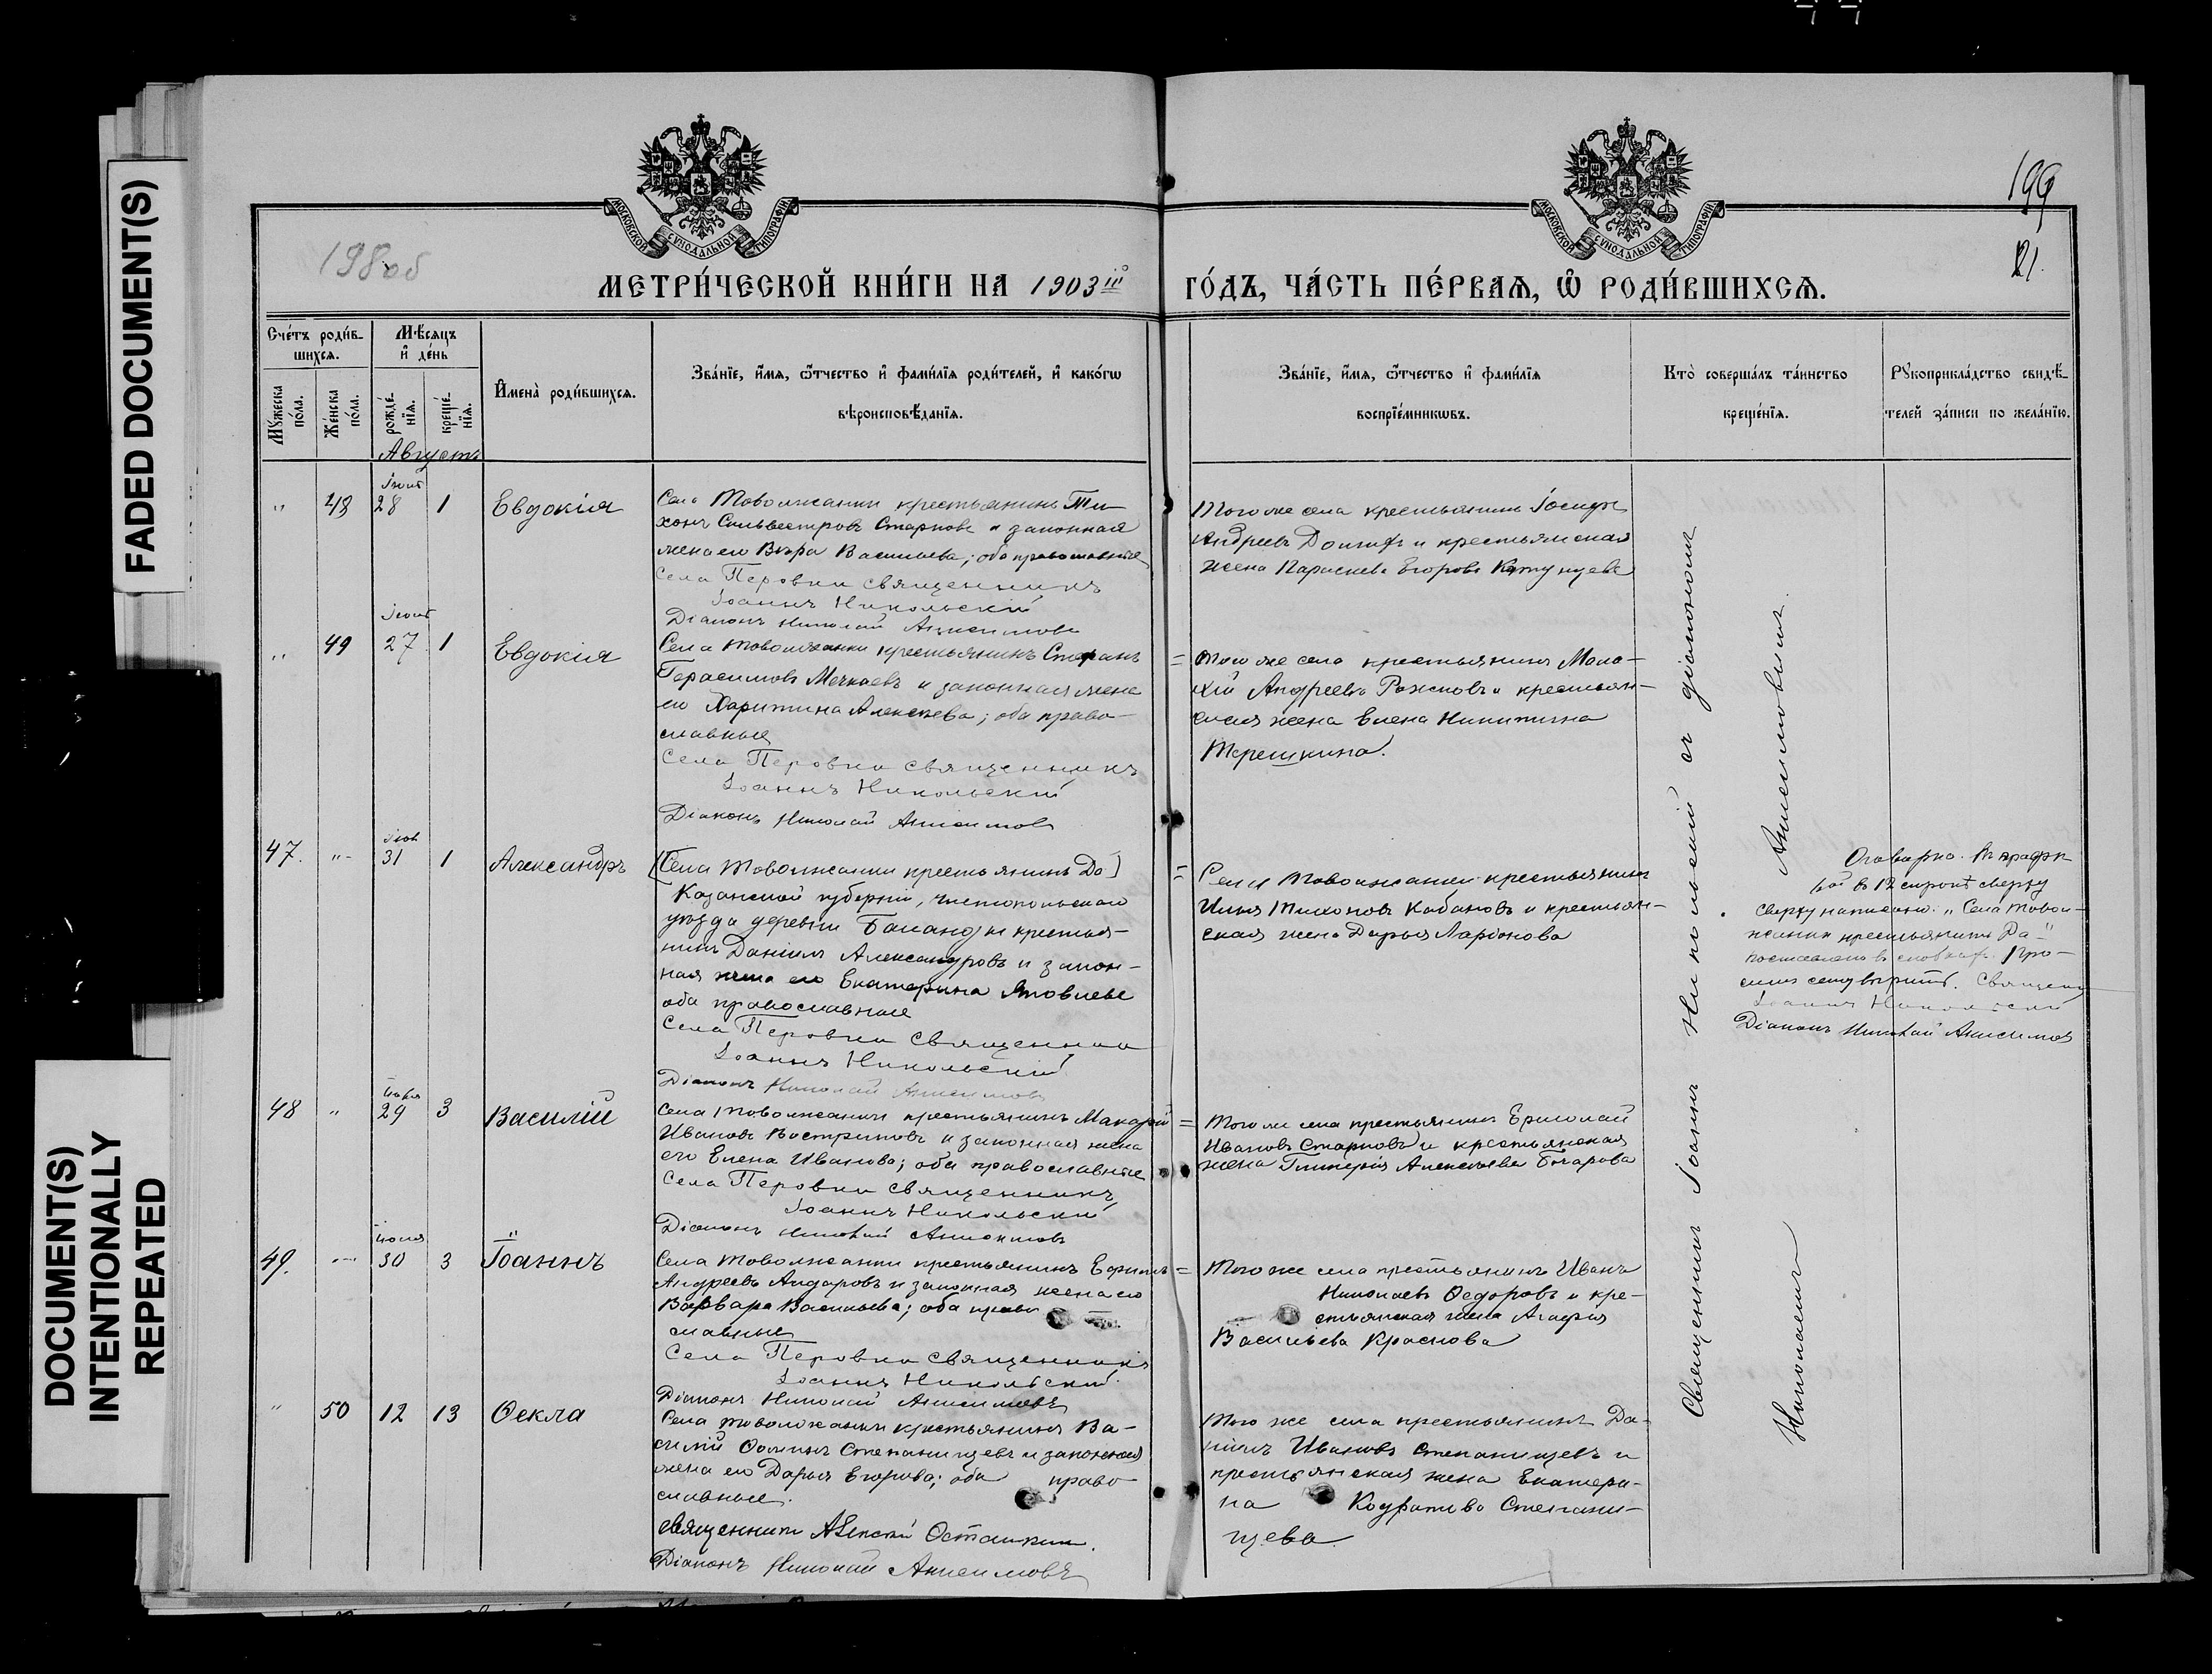 FADED DOCUMENT(S)
DOCUMENT(S)
INTENTIONALLY
REPEATED
МОСКОВСКОЙ СУНОДАЛЬНОЙ ТИПОГРАФІИ
МОСКОВСКОЙ СУНОДАЛЬНОЙ ТИПОГРАФІИ
198об
199
21.
МЕТРИ́ЧЕСКОЙ КНИ́ГИ НА 1903 ій
ГО́ДЪ, ЧА́СТЬ ПЕ́РВАѦ, Ѿ РОДИ́ВШИХСѦ.
Сче́тъ роди́в-
шихсѧ.
Мꙋ́жеска
по́ла.
Же́нска
по́ла.
Мѣ́сѧцъ
и҆ де́нь
рожде́-
нїѧ.
креще́-
нїѧ.
И҆мена̀ роди́вшихсѧ.
Зва́нїе, и҆́мѧ, ѻ҆́тчество и҆ фами́лїѧ роди́телей, и҆ како́гѡ
вѣроисповѣ́данїѧ.
Зва́нїе, и҆́мѧ, ѻ҆́тчество и҆ фами́лїѧ
воспрїе́мникѡвъ.
Кто̀ соверша́лъ та́инство
креще́нїѧ.
Рꙋкоприкла́дство свидѣ́-
телей за́писи по жела́нїю.
Августъ
" 48 28 1 Евдокія
Села Товолжанки крестьянинъ Ти-
хонъ Сильвестровъ Старковъ и законная
жена его Вѣра Васильева; оба православные
Села Перовки священникъ
Іоаннъ Никольскій
Діаконъ Николай Анисимовъ
Того же села крестьянинъ Іосифъ
Андреевъ и крестьянская
жена Параскева Егорова
" 49 27 1 Евдокія
Села Товолжанки крестьянинъ Стефанъ
Герасимовъ Мечкаевъ и законная жена
его Харитина Алексѣева; оба право-
славные
Села Перовки священникъ
Іоаннъ Никольскій
Діаконъ Николай Анисимовъ
= Того же села крестьянинъ Мала-
хій Андреевъ Рожновъ и крестьян-
ская жена Елена Никитична
Терешкина.
47. " 31 1 Александръ
[Села Товолжанки крестьянинъ Да]
Казанской губерніи, Чистопольскаго
уѣзда деревни крестья-
нинъ Даніилъ Александровъ и закон-
ная жена его Екатерина Яковлева
оба православные
Села Перовки священник
Іоаннъ Никольскій
Діаконъ Николай Анисимовъ
= Села Товолжанки крестьянинъ
Илья Тихоновъ Кабановъ и крестьян-
ская жена Дарья Ларіонова
въ 12 строкѣ сверху
сверху написано: „Села Товол-
жанки крестьянинъ Да"
поставлено в Про-
Священ
Іоаннъ Никольскій
Діаконъ Николай Анисимов
48 " 29 3 Василій
Села Товолжанки крестьянинъ Макарій
Ивановъ Востриковъ и законная жена
его Елена Иванова; оба православные
Села Перовки священникъ
Іоаннъ Никольскій
Діаконъ Николай Анисимовъ
= Того же села крестьянинъ Ермолай
Ивановъ Старковъ и крестьянская
жена Гликерія Алексѣева Бочарова
49. " 30 3 Іоаннъ
Села Товолжанки крестьянинъ Ефимъ
Андреевъ Андаровъ и законная жена его
Варвара Васильева; оба право
славные
Села Перовки священникъ
Іоаннъ Никольскій.
Діаконъ Николай Анисимовъ
= Того же села крестьянинъ Иванъ
Николаевъ Ѳедоровъ и кре-
стьянская жена Агафія
Васильева Краснова
" 50 12 13 Ѳекла
Села Товолжанки крестьянинъ Ва-
силій Ѳоминъ Степанищевъ и законная
жена его Дарья Егорова; оба право
славные.
священник Алексій Осташкин.
Діаконъ Николай Анисимовъ
Того же села крестьянинъ Да-
ніилъ Ивановъ Степанищевъ и
крестьянская жена Екатери-
на Кодратова Степани-
щева
Священникъ Іоаннъ Никольскій съ діакономъ
Николаемъ Анисимовымъ.